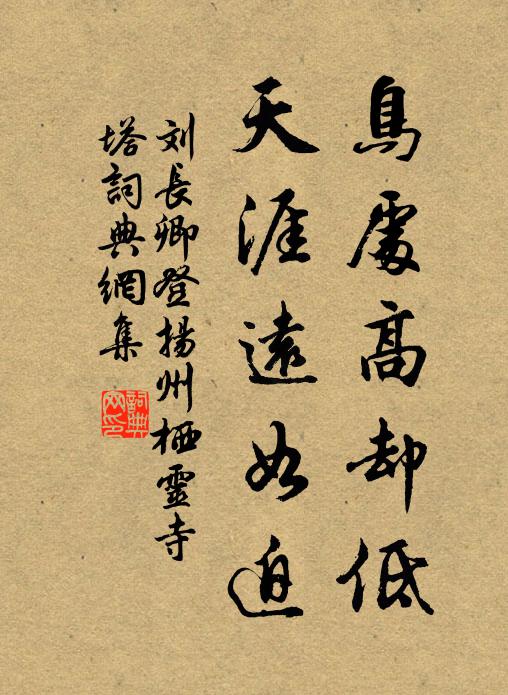 鳥處高却低
天涯遠如迫
刘長卿登揚州栖靈寺
塔詞典網集
詞典
网印